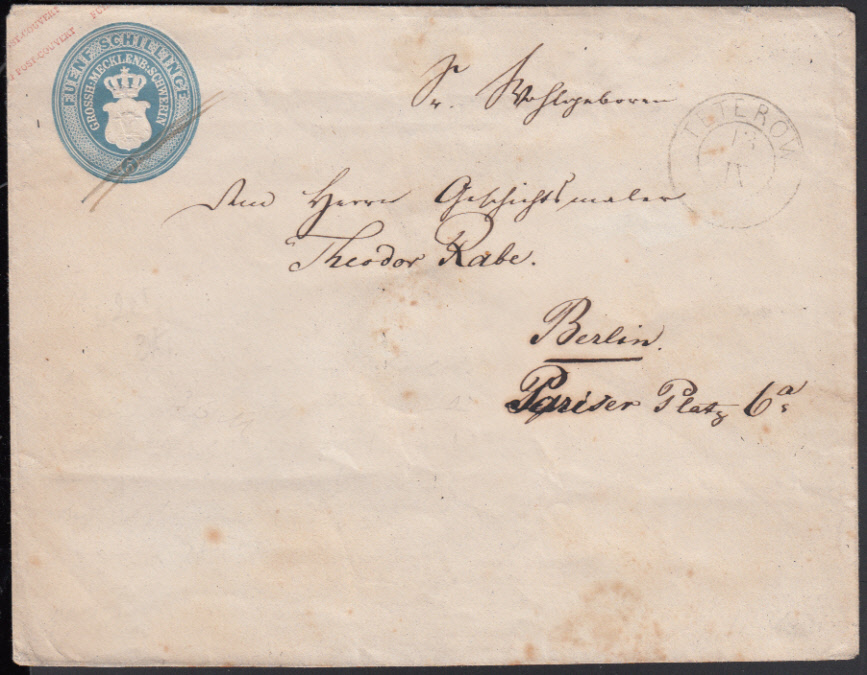 POST-COUVERT
POST-COUVERT
FUENF SCHILLINGE
GROSSH. MECKLENB. SCHWERIN
5
Sr. Wohlgeboren
TETEROW
13
dem Herrn Geschichtsmaler
Theodor Rabe.
Berlin.
Pariser Platz 6a.